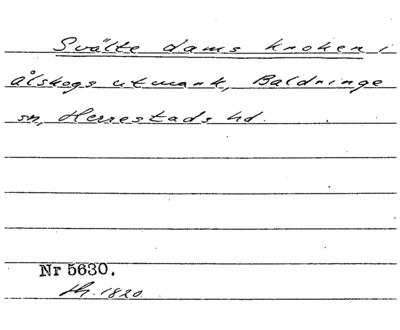 Svälte dams kroken i
Ålskogs utmark, Baldringe
sn, Herrestads hd.
Nr 5630.
1820.